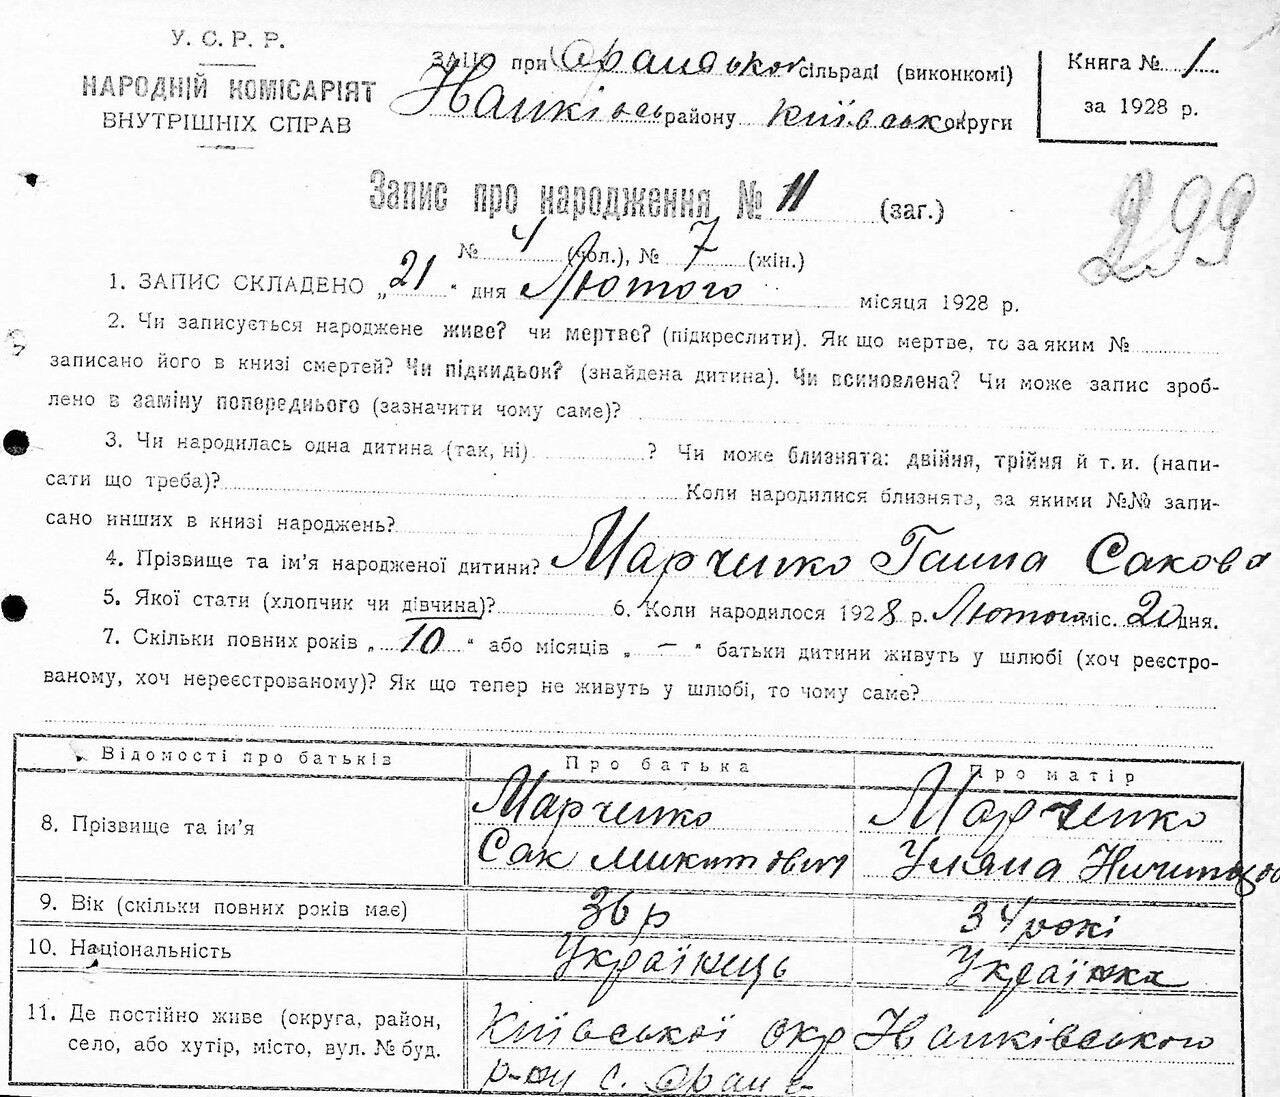 У. С. Р. Р.
НАРОДНІЙ КОМІСАРІЯТ
ВНУТРІШНІХ СПРАВ
ЗАГС при Оранської сільраді (виконкомі)
району Київської округи
Книга № 1
за 1928 р.
Запис про народження № 11 (заг.)
№ 4 (чол.), № 7 (жін.)
299
1. ЗАПИС СКЛАДЕНО „21“ дня Лютого місяця 1928 р.
2. Чи записується народжене живе? чи мертве? (підкреслити). Як що мертве, то за яким №
записано його в книзі смертей? Чи підкидьок? (знайдена дитина). Чи всиновлена? Чи може запис зроб-
лено в заміну попереднього (зазначити чому саме)?
3. Чи народилась одна дитина (так, ні) ? Чи може близнята: двійня, трійня й т. и. (напи-
сати що треба)? Коли народилися близнята, за якими №№ запи-
сано инших в книзі народжень?
4. Прізвище та ім’я народженої дитини? Марченко Ганна Сакова
5. Якої стати (хлопчик чи дівчина)? 6. Коли народилося 1928 р. Лютого міс. 20 дня.
7. Скільки повних років „ 10 “ або місяців „ — “ батьки дитини живуть у шлюбі (хоч реєстро-
ваному, хоч нереєстрованому)? Як що тепер не живуть у шлюбі, то чому саме?
Відомості про батьків Про батька Про матір
8. Прізвище та ім’я Марченко Марченко
Сак Микитович Уляна
9. Вік (скільки повних років має) 36 р 34 рокі
10. Національність Українець Українка
11. Де постійно живе (округа, район,
село, або хутір, місто, вул. № буд.
Київської окр
р-ну с. Оране